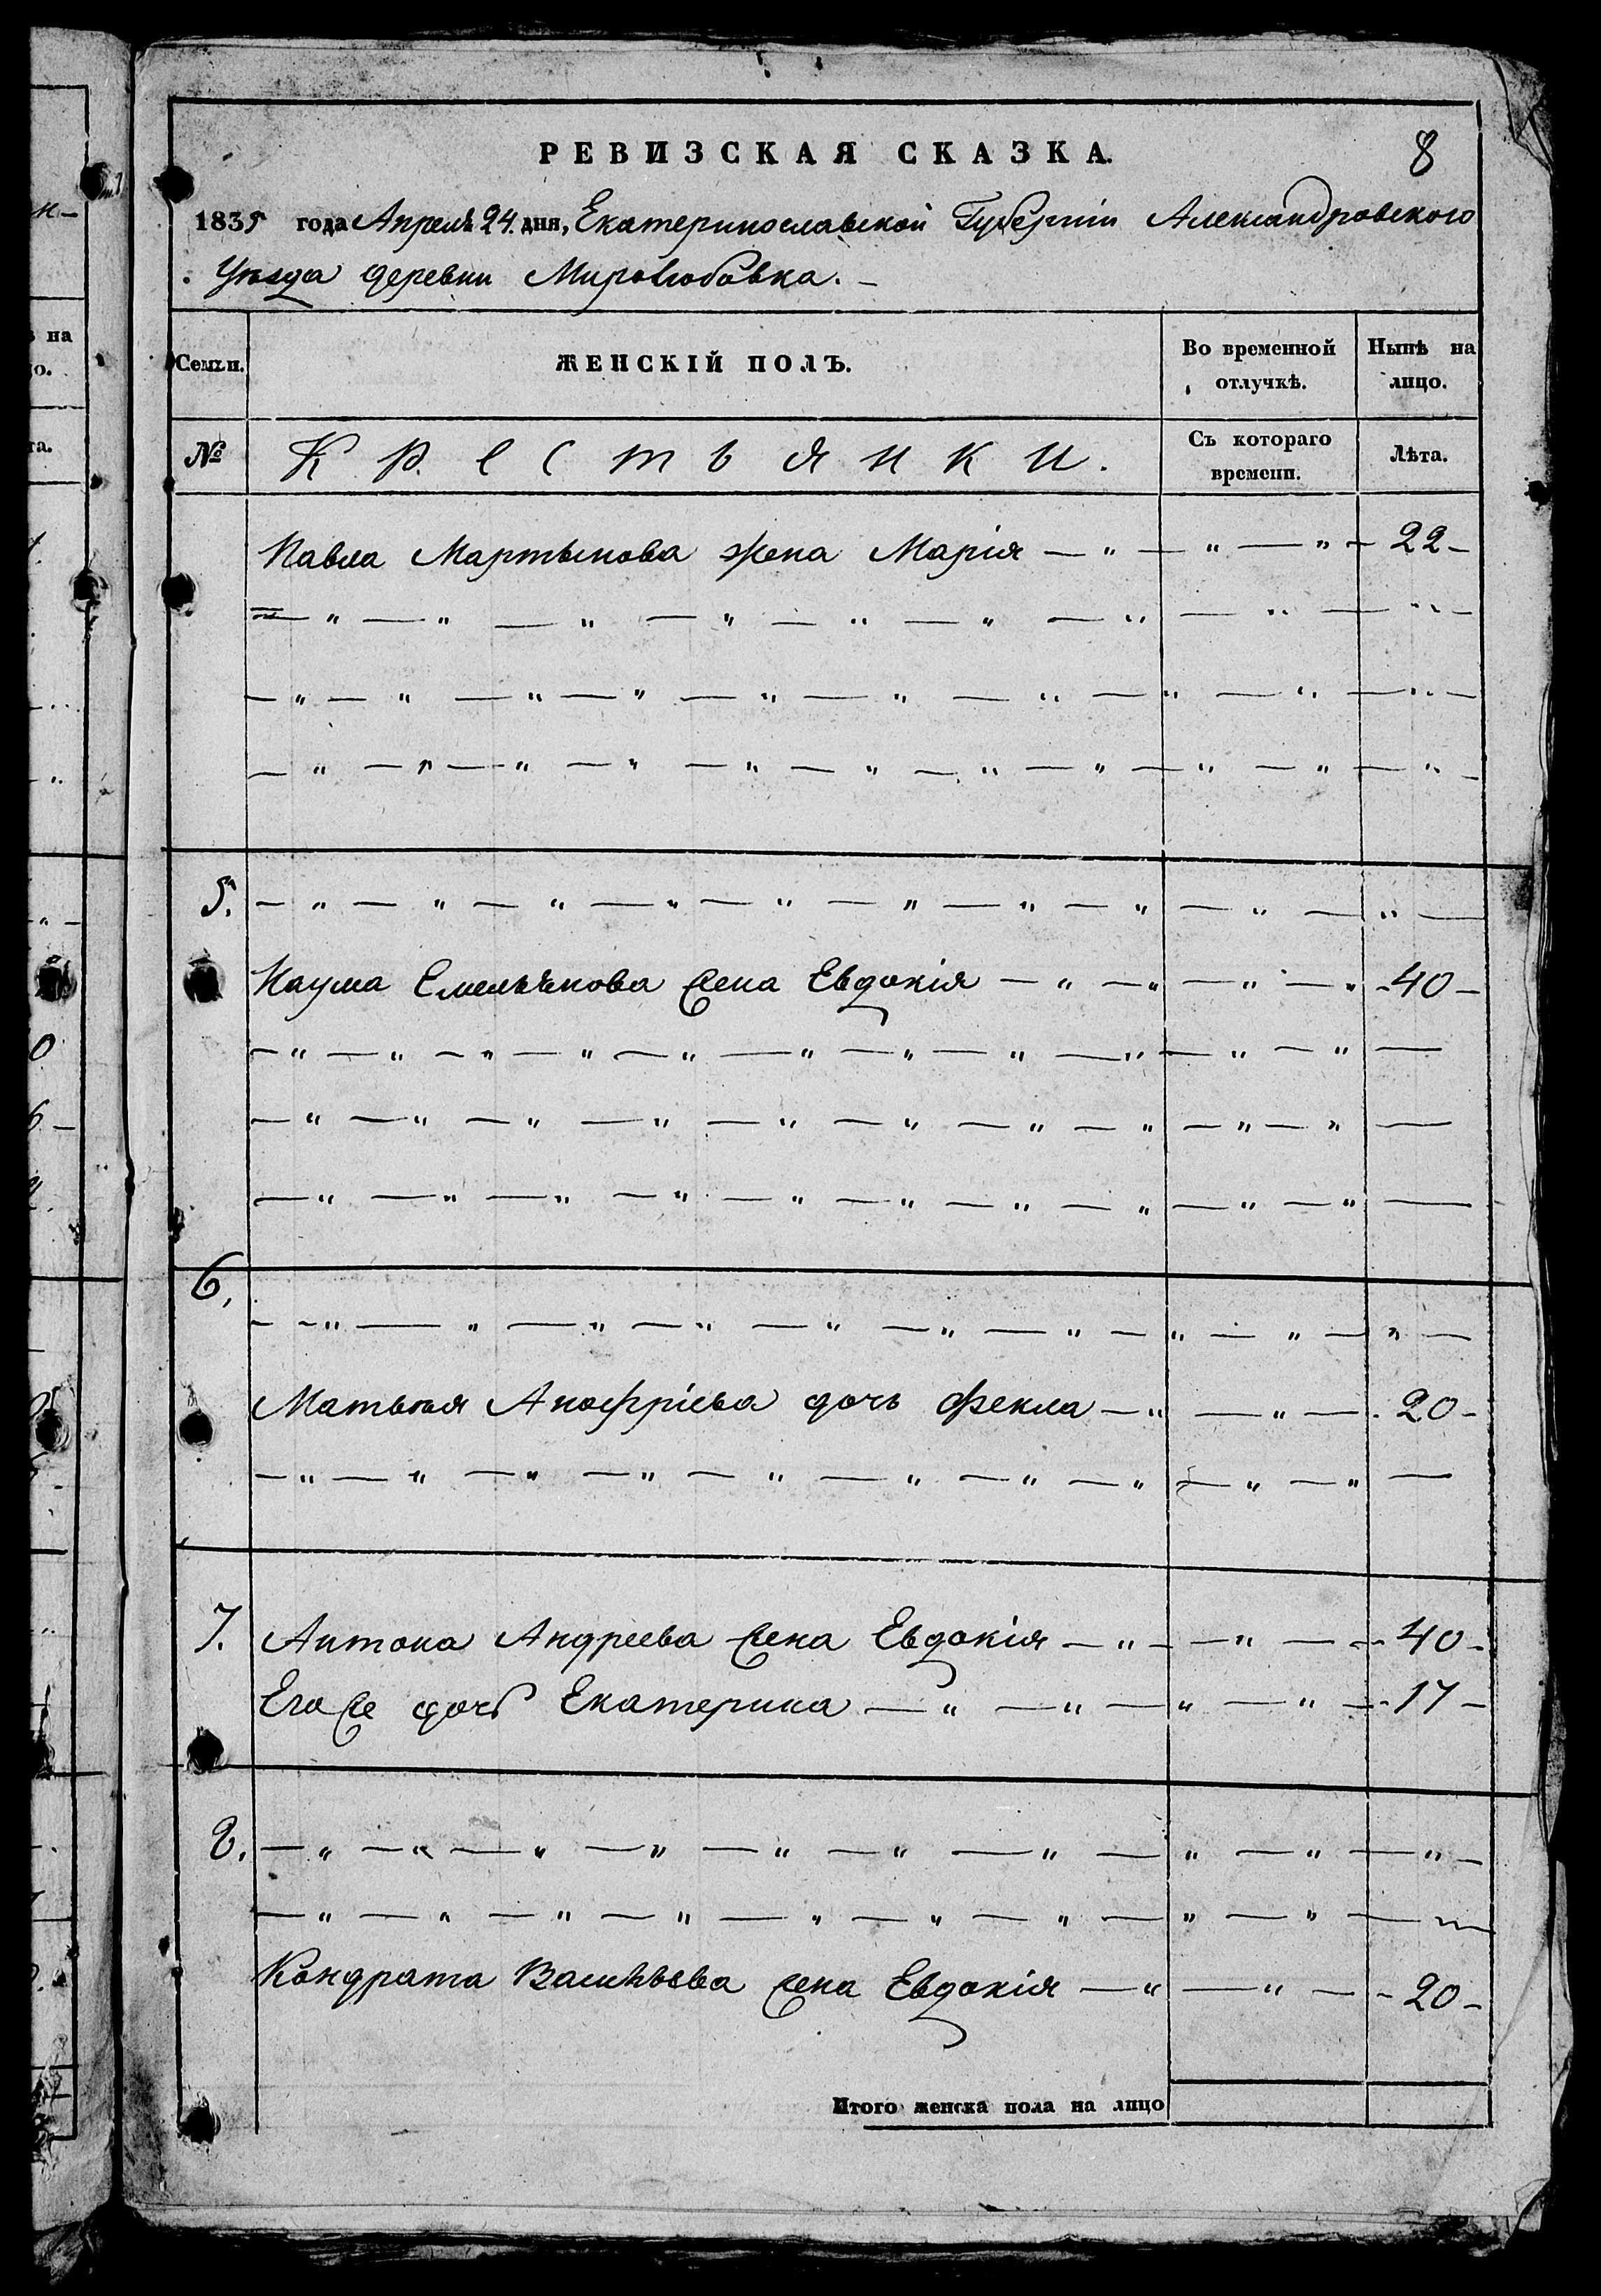 РЕВИЗСКАЯ СКАЗКА.
8
1835 года Апреля 24. дня, Екатеринославской Губернии Александровского
Уезда деревни Миролюбовка.
Семьи.
ЖЕНСКІЙ ПОЛЪ.
Во временной отлучкѣ.
Нынѣ на лицо.
№
Крестьянки.
Съ котораго времени.
Лѣта.
Павла Мартынова жена Марія — " — " — " — 22 —
5.
Наума Емельянова жена Евдокія — " — " — " — " - 40 —
6.
Матвея Анофріева дочь Фекла — " — " — . 20 -
7. Антона Андреева жена Евдокія — " — — " — - 40 -
Его же дочь Екатерина — " — " — " — " — - 17 —
8.
Кондрата Васильева жена Евдокія — " — " — - 20 -
Итого женска пола на лицо